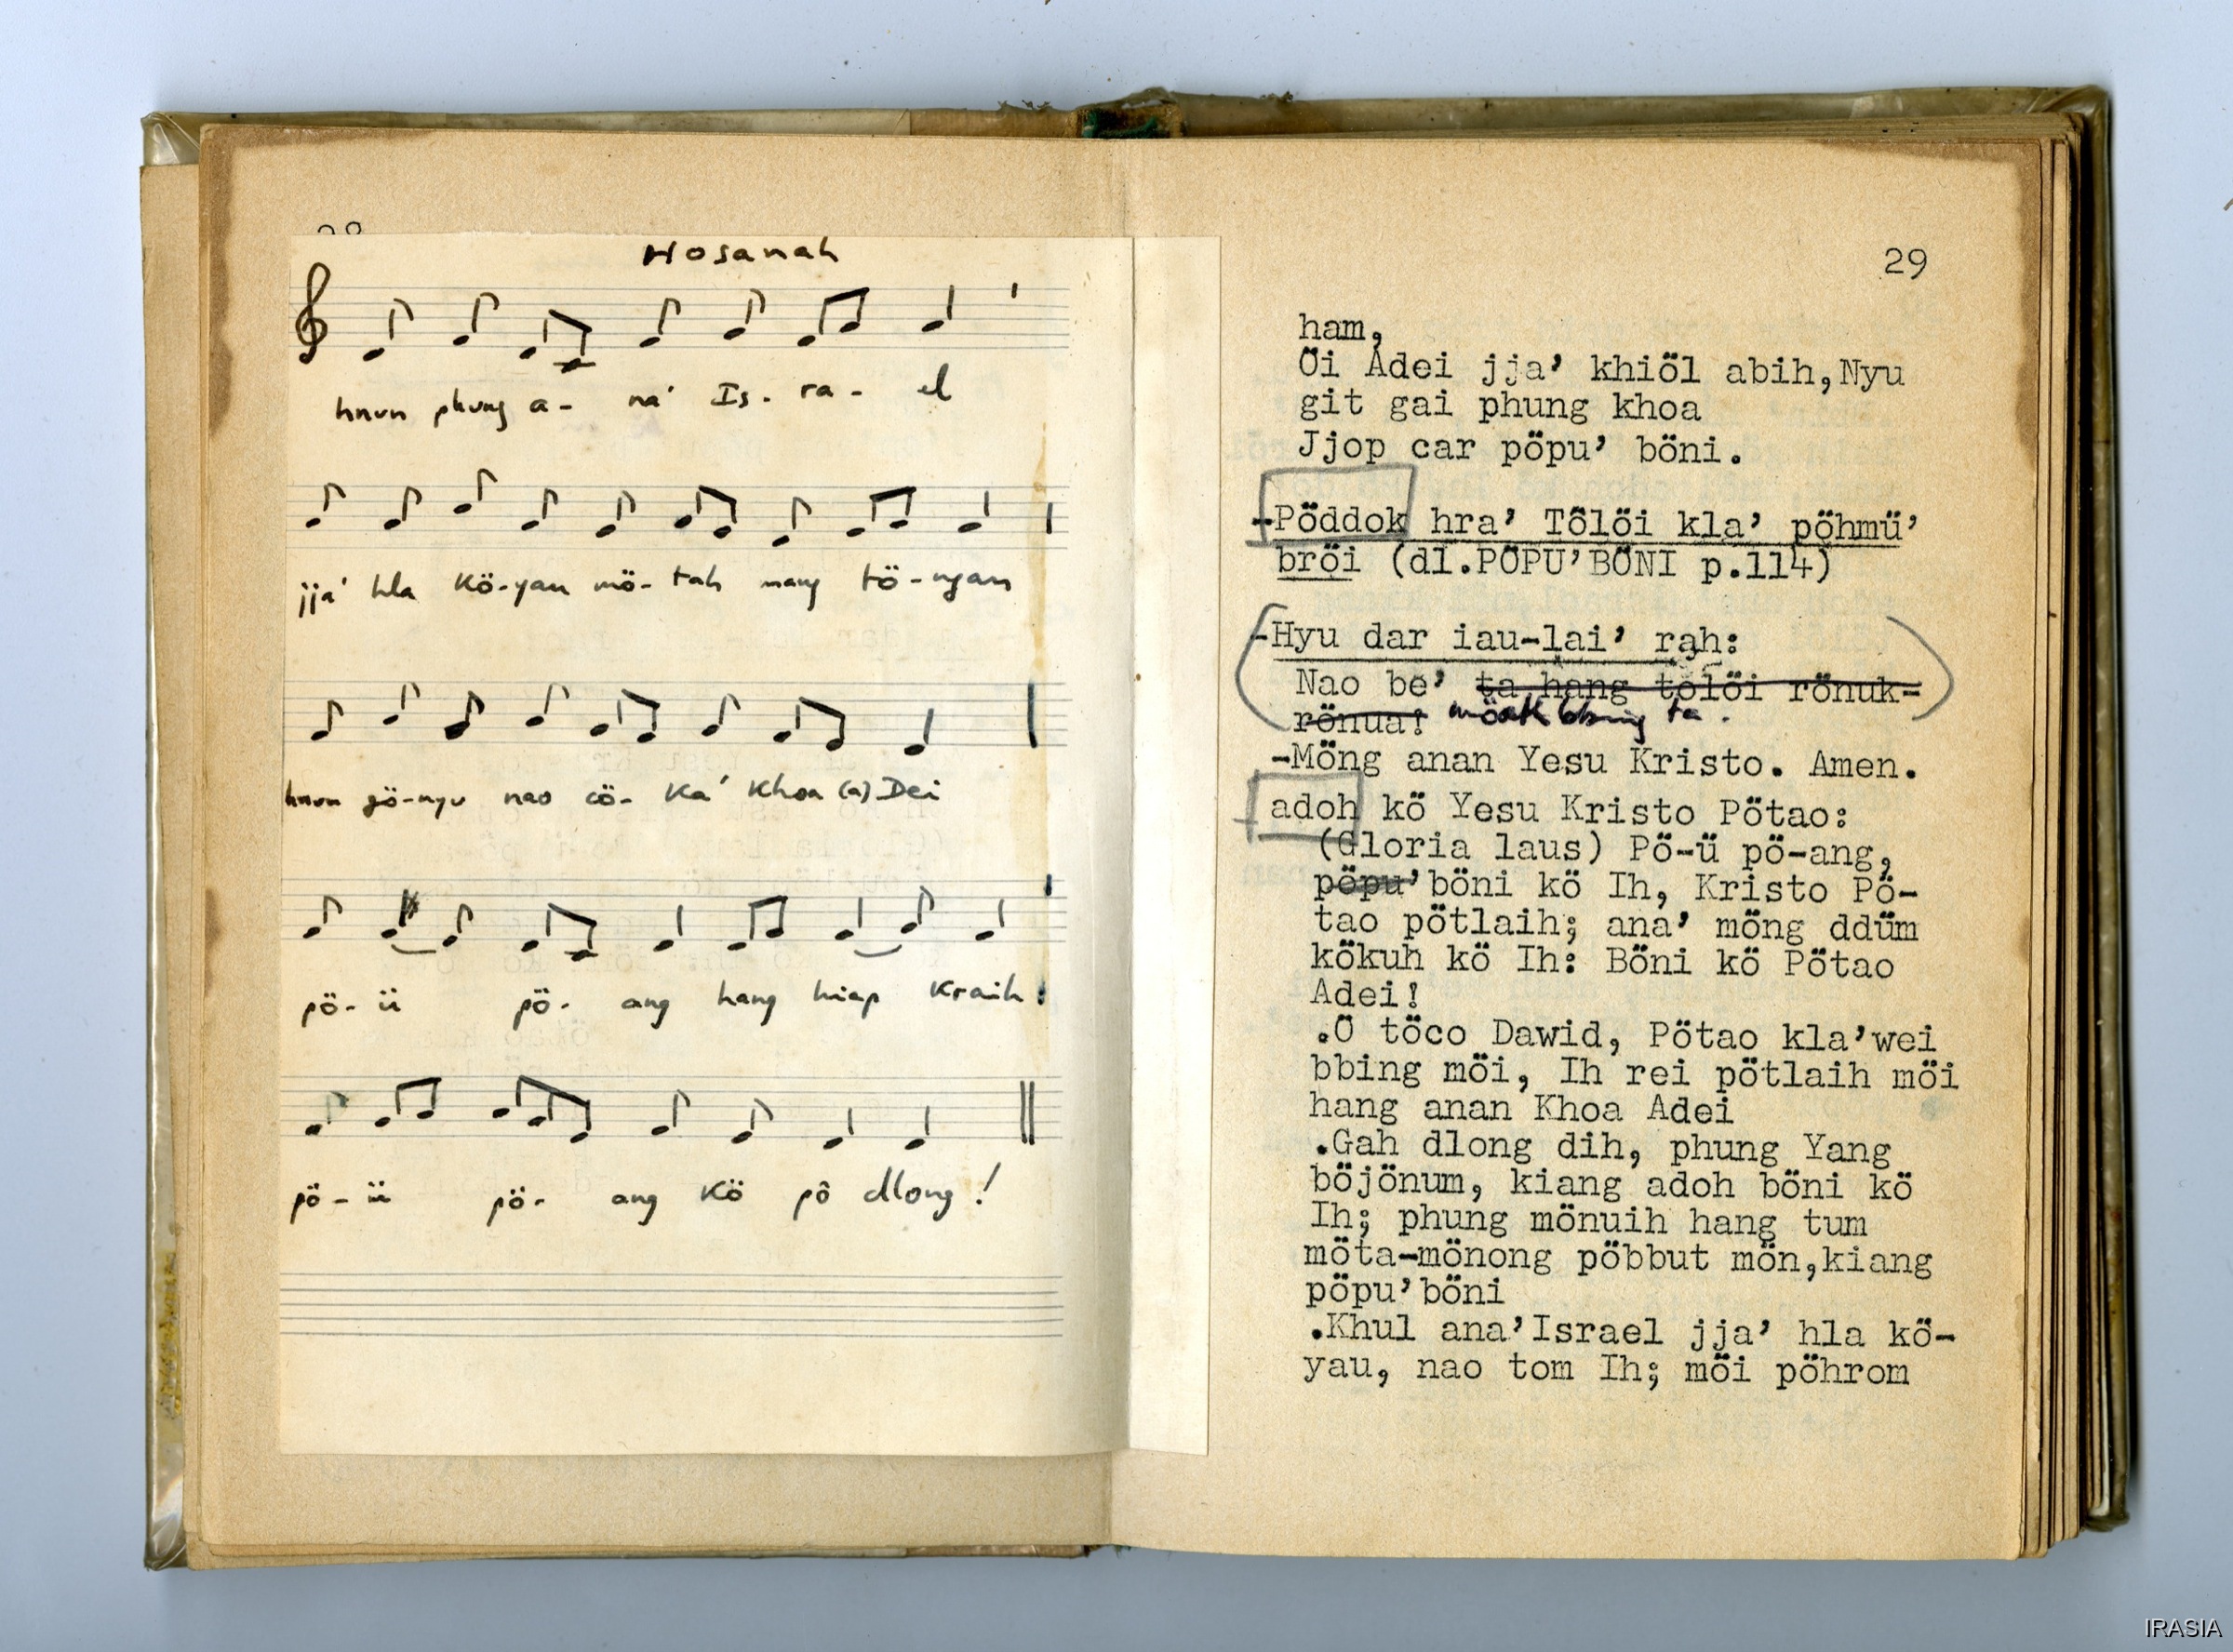 Hosanah
hnun phung a- na' Is- ra- el
jja' hla Kö-yau mö- tah nang tö-ngan
hnun gö-nyu nao cö- Ka' Khoa (a) Dei
pö- ü pö- ang hang hiap Kraih !
pö- ü pö- ang Kö pô dlong !
29
ham,
Öi Adei jja' khiöl abih,Nyu
git gai phung khoa
Jjop car pöpu' böni.
-Pöddok hra' Tölöi kla' pöhmü'
bröi (dl.PÖPU'BÖNI p.114)
-Hyu dar iau-lai' rah:
Nao be' ta hang tölöi rönuk-
rönua! möak bbing ta.
-Möng anan Yesu Kristo. Amen.
adoh kö Yesu Kristo Pötao:
(Gloria laus) Pö-ü pö-ang,
pöpu'böni kö Ih, Kristo Pö-
tao pötlaih; ana' möng ddüm
kökuh kö Ih: Böni kö Pötao
Adei!
.Ö töco Dawid, Pötao kla'wei
bbing möi, Ih rei pötlaih möi
hang anan Khoa Adei
.Gah dlong dih, phung Yang
böjönum, kiang adoh böni kö
Ih; phung mönuih hang tum
möta-mönong pöbbut mön,kiang
pöpu'böni
.Khul ana'Israel jja' hla kö-
yau, nao tom Ih; möi pöhrom
IRASIA